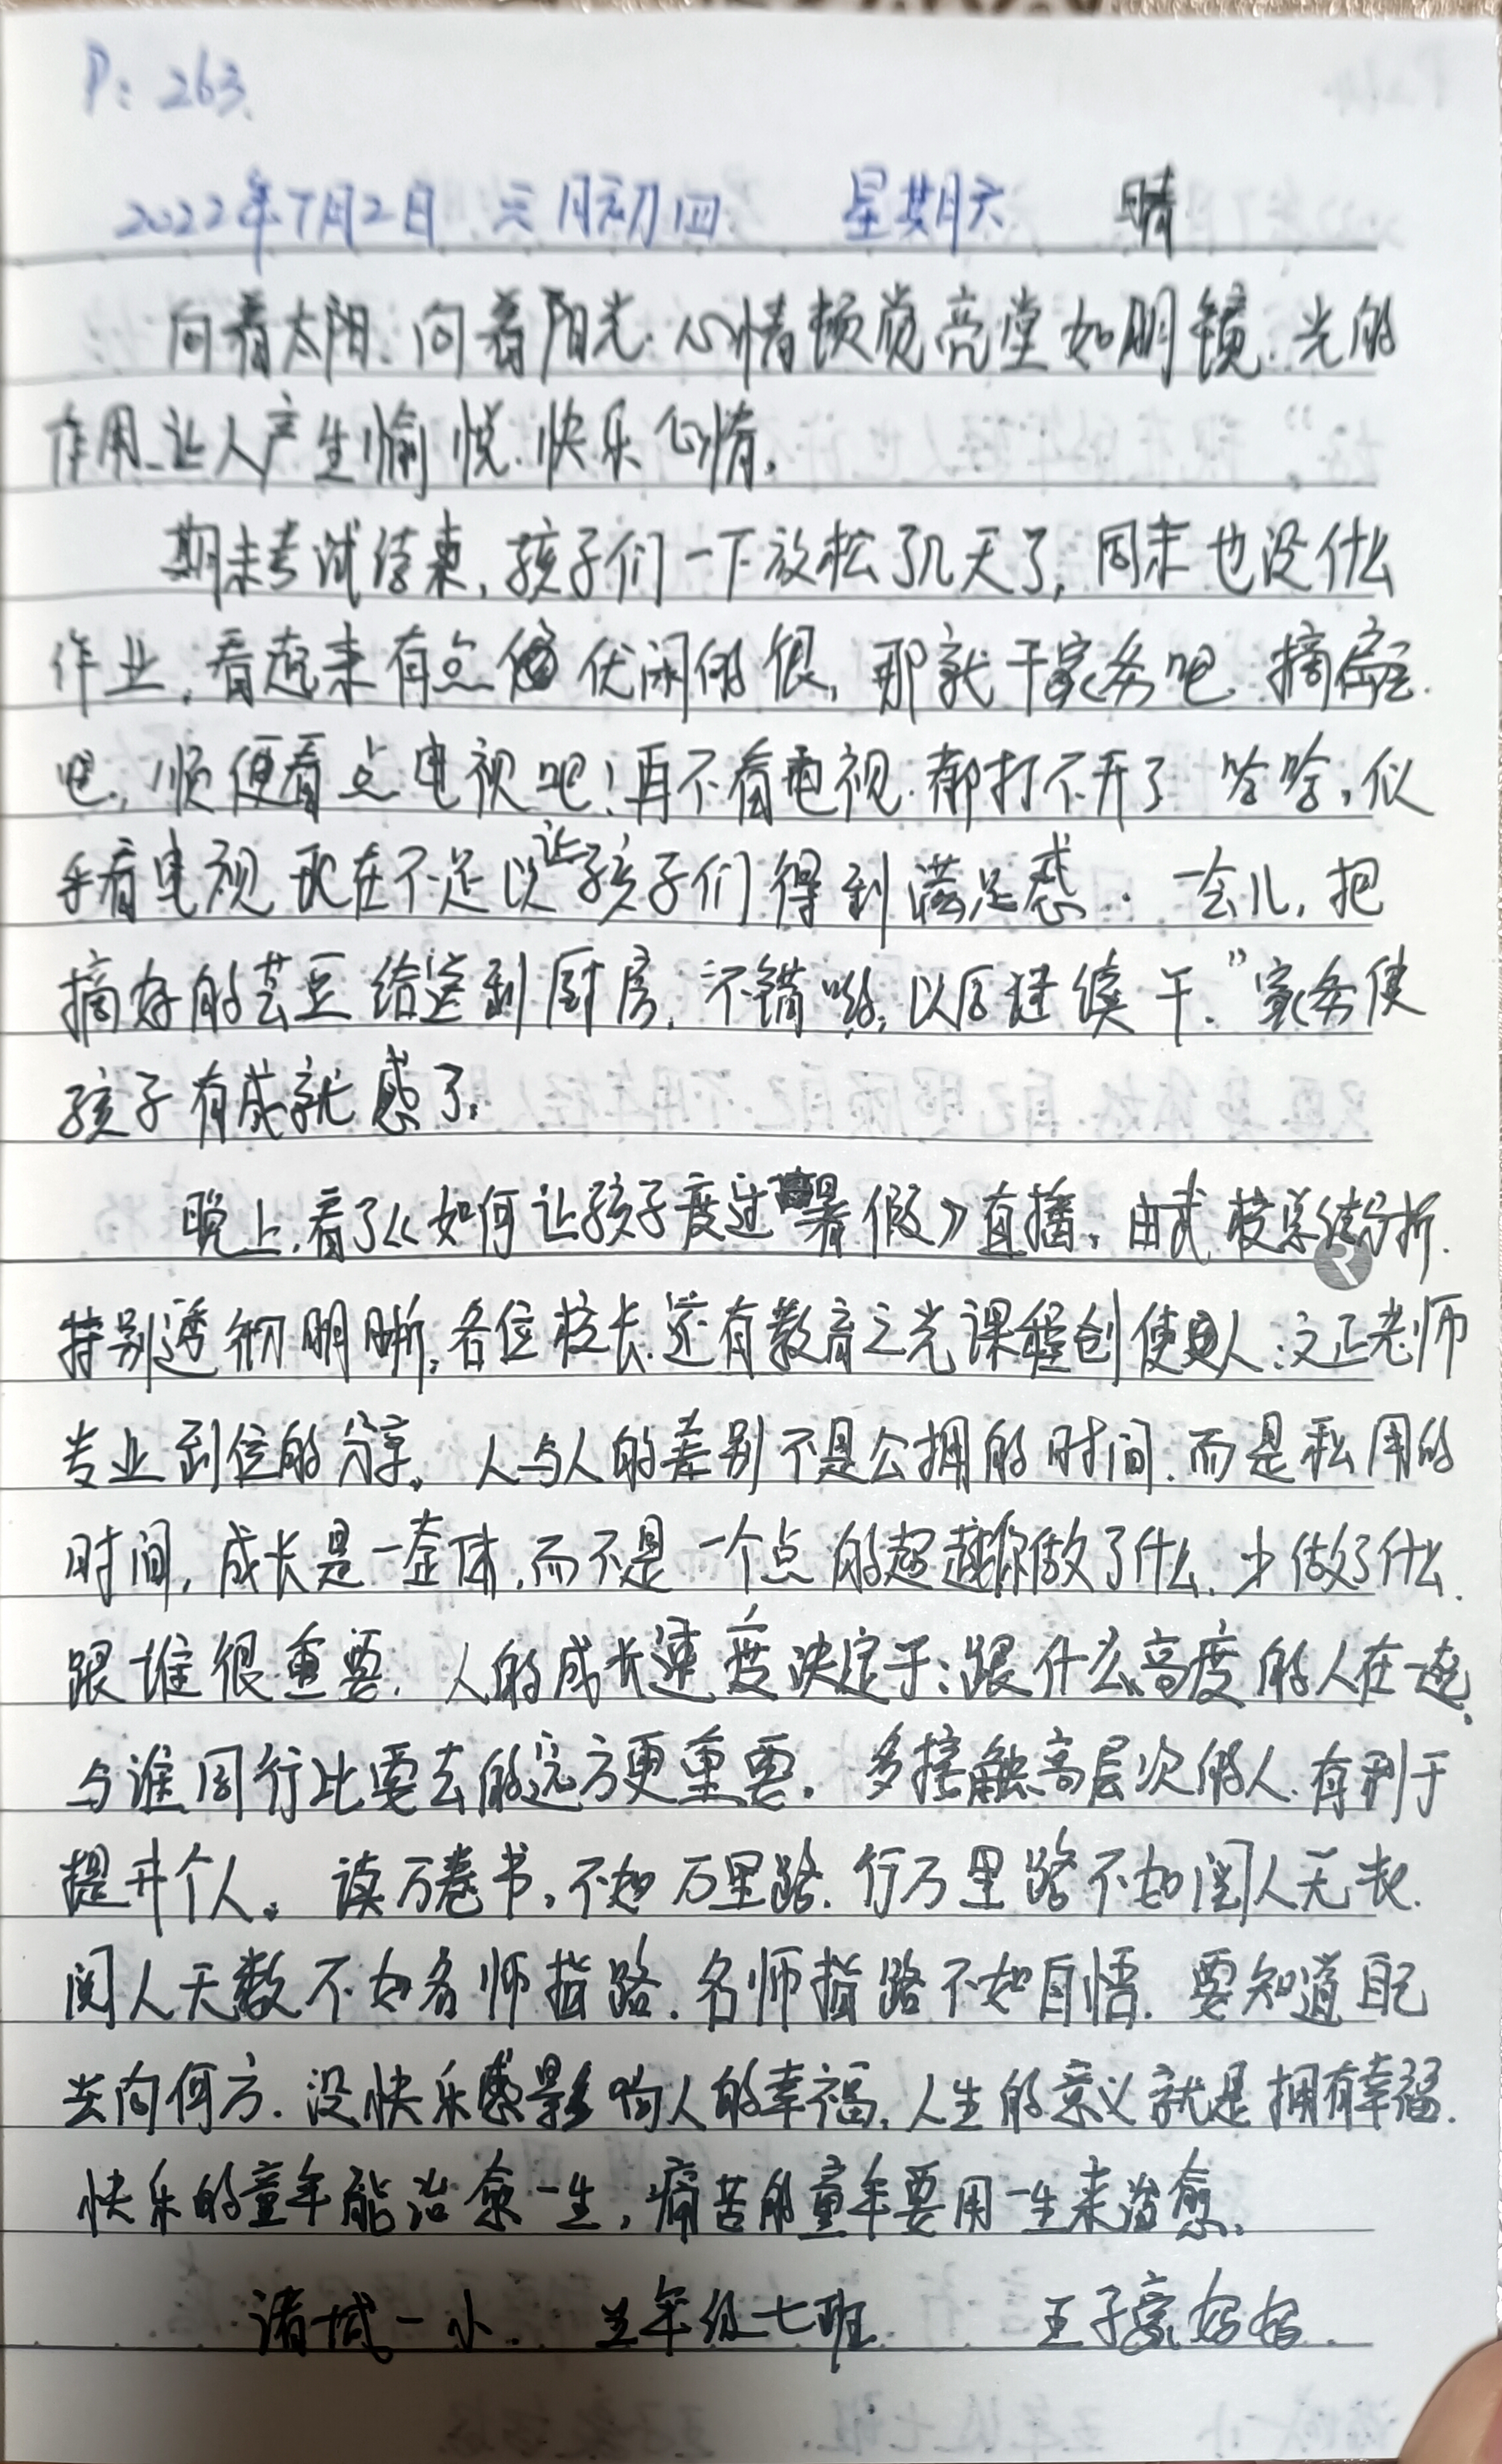 P: 263.
2022年7月2日 六月初四 星期六 晴
向着太阳、向着阳光.心情顿觉亮堂如明镜.光的
作用.让人产生愉悦.快乐心情.
期末考试结束,孩子们一下放松了几天了,周末也没什么
作业,看起来有点 优闲的很,那就干家务吧 摘芸豆.
吧,顺便看点电视吧!再不看电视.都打不开了 哈哈,似
乎看电视 现在不足以让孩子们得到满足感. 一会儿,把
摘好的芸豆给送到厨房,不错哟,以后继续干."家务使
孩子有成就感了.
晚上.看了《如何让孩子度过暑假》直播,由武校总结分析.
特别透彻明晰,各位校长.还有教育之光课程创使人:文正老师
专业到位的分享。人与人的差别不是公拥的时间.而是私用的
时间,成长是一套体,而不是一个点的超越你做了什么.少做了什么.
跟谁很重要.人的成长速度决定于:跟什么高度的人在一起.
与谁同行比要去的远方更重要.多接触高层次的人.有利于
提升个人。读万卷书,不如万里路.行万里路不如阅人无数.
阅人无数不如名师指路.名师指路不如自悟.要知道自己
去向何方.没快乐感影响人的幸福,人生的意义就是拥有幸福.
快乐的童年能治愈一生,痛苦的童年要用一生来治愈.
诸城一小. 五年级七班 王子豪妈妈.